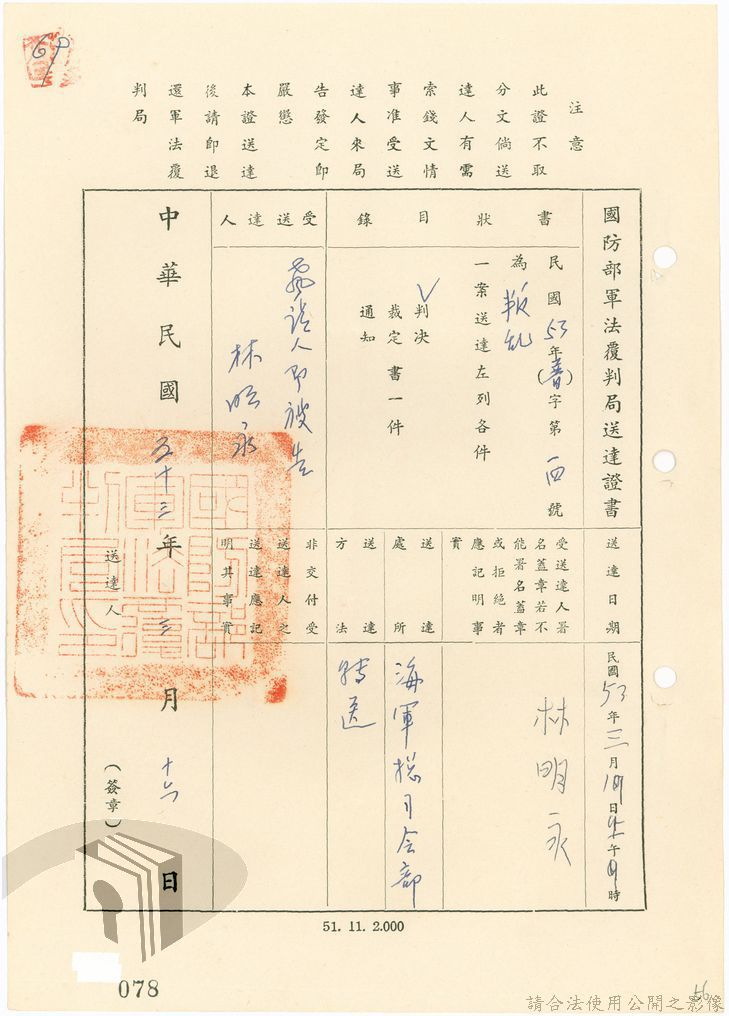 注意
此證不取
分文倘送
達人有需
索錢文情
事准受送
達人來局
告發定即
嚴懲
本證送達
後請即退
還軍法覆
判局
國防部軍法覆判局送達證書
書狀目錄
民國53年(普)字第西號
為叛乱
一案送達左列各件
✓判決
裁定書一件
通知
受送達人
聲請人即被告
林明永
中華民國五十三年三月十六日
送達人
(簽章)
送達日期
民國53年三月19日上午9時
受送達人署
名蓋章若不
能署名蓋章
或拒絕者
應記明事
實
林明永
送達處所
海軍總司令部
送達方法
轉送
非交付受
送達人之
送達應記
明其事實
51. 11. 2.000
078
56
請合法使用公開之影像